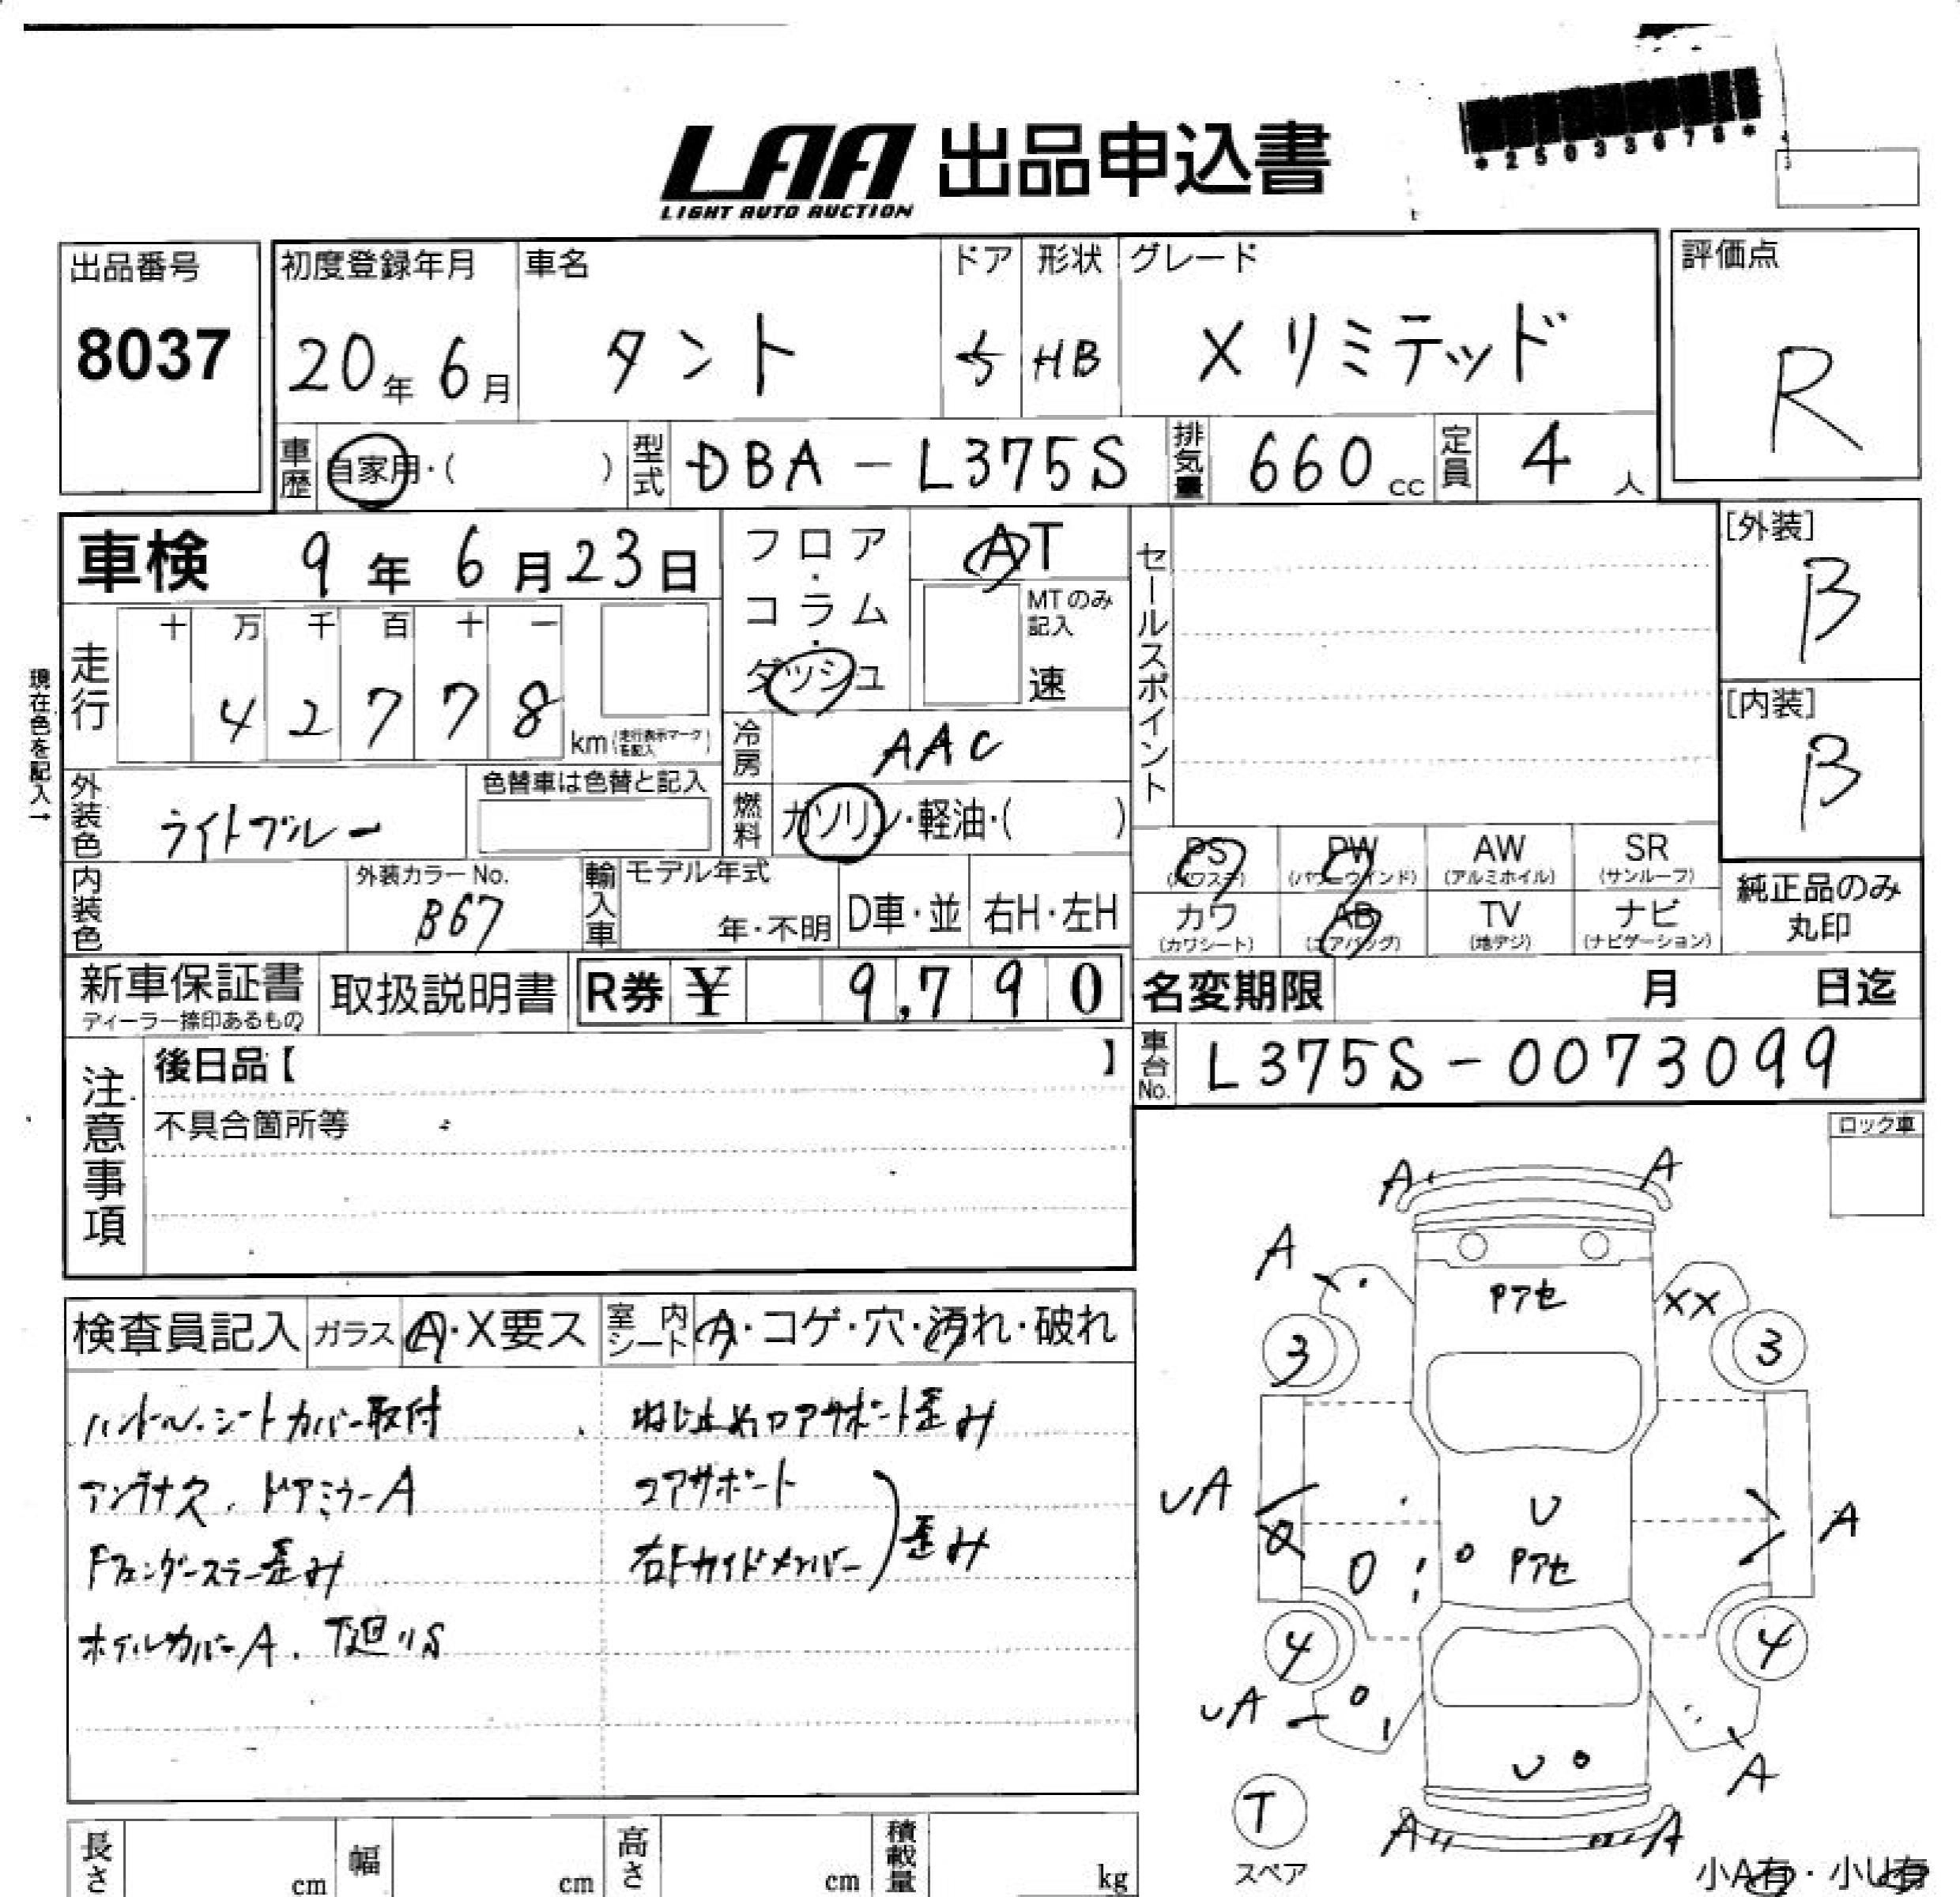 *25033678*
LAA 出品申込書
LIGHT AUTO AUCTION
出品番号 初度登録年月 車名 ドア 形状 グレード 評価点
8037 20年 6月 タント 5 HB Xリミテッド R
車歴 自家用・( ) 型式 DBA-L375S 排気量 660cc 定員 4人
車検 9年 6月23日 フロア・コラム・ダッシュ AT
MTのみ記入
速
セールスポイント
[外装]
B
[内装]
B
走行 十 万 千 百 十 一
4 2 7 7 8 km(走行表示マークを記入)
現在色を記入→
冷房 AAC
外装色 ライトブルー 色替車は色替と記入
燃料 ガソリン・軽油・( )
PS(パワステ) PW(パワーウインド) AW(アルミホイル) SR(サンルーフ)
カワ(カワシート) AB(エアバッグ) TV(地デジ) ナビ(ナビゲーション)
純正品のみ
丸印
内装色 外装カラーNo. B67 輸入車 モデル年式 年・不明 D車・並 右H・左H
新車保証書 取扱説明書 R券 ¥ 9,790 名変期限 月 日迄
ディーラー捺印あるもの
車台No. L375S-0073099
注意事項
後日品【 】
不具合箇所等
ロック車
検査員記入 ガラス A・X要ス 室内シート A・コゲ・穴・汚れ・破れ
ハンドル・シートカバー取付
アンテナ欠、ドアミラーA
Fフェンダーステー歪み
ホイルカバーA、下廻りS
ねじ止めコアサポート歪み
コアサポート
右Fサイドメンバー
歪み
A A
A
Pアセ XX
3 3
UA U A
Pアセ
4 4
UA
U A
T
スペア
A A
小A有・小U有
長さ cm 幅 cm 高さ cm 積載量 kg